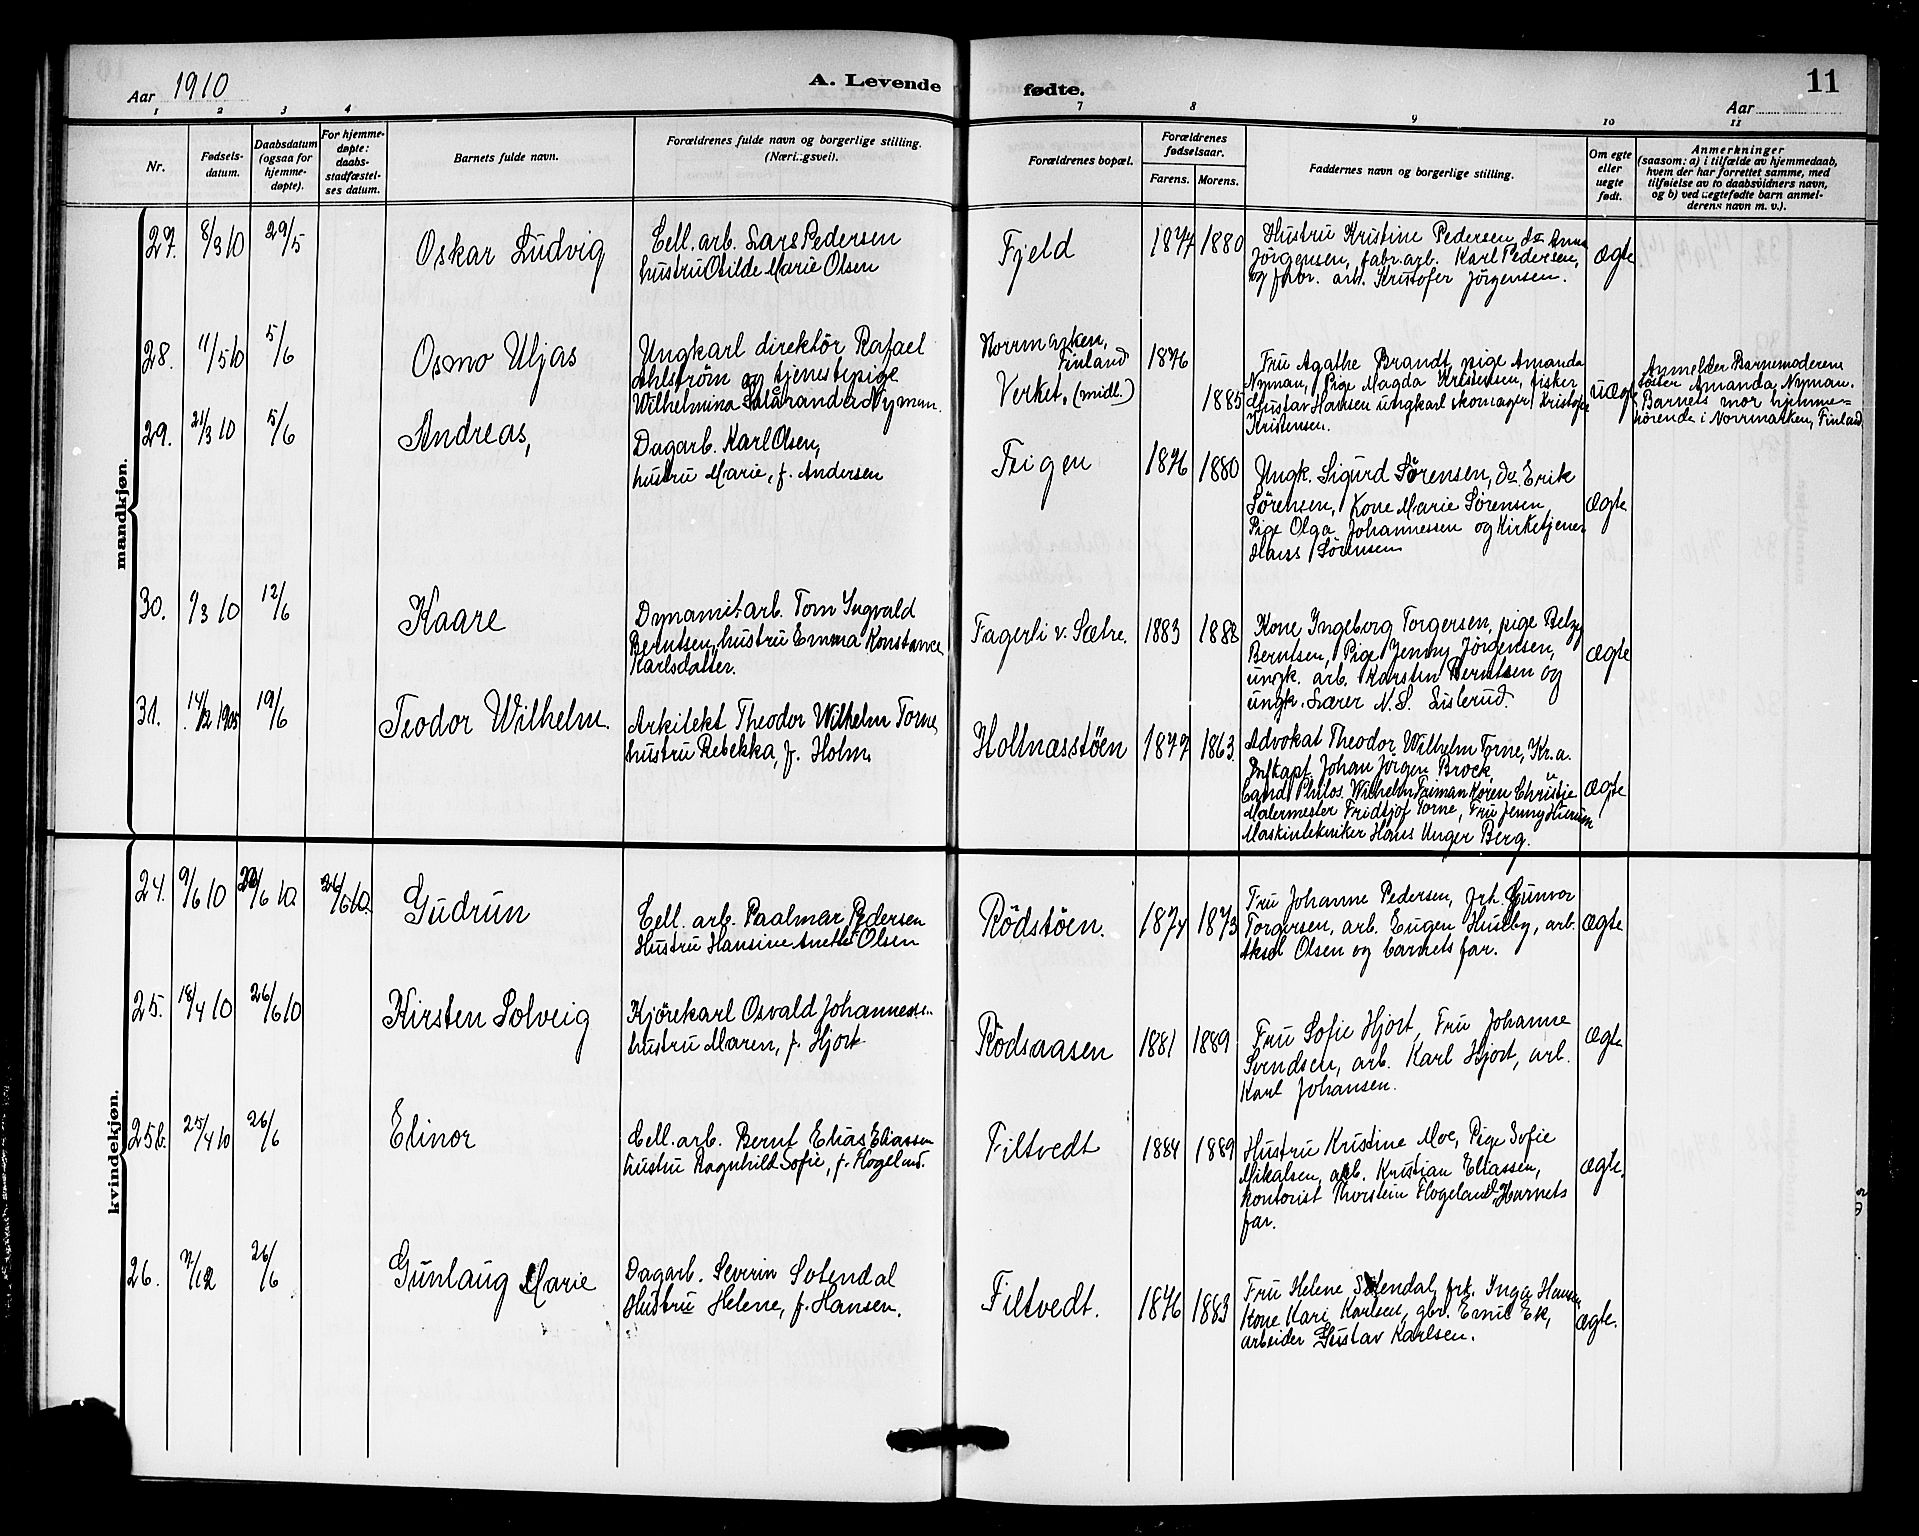 Aar 1910
A. Levende
fødte.
11
Aar
1 2 3 4 7 8 9 10 11
Nr.
Fødsels-
datum.
Daabsdatum
(ogsaa for
hjemme-
døpte).
For hjemme-
døpte:
daabs-
stadfæstel-
ses datum.
Barnets fulde navn.
Forældrenes fulde navn og borgerlige stilling.
(Næringsvei).
Forældrenes bopæl.
Forældrenes
fødselsaar.
Farens. Morens.
Faddernes navn og borgerlige stilling.
Om egte
eller
uegte
født.
Anmerkninger
(saasom: a) i tilfælde av hjemmedaab,
hvem der har forrettet samme, med
tilføielse av to daabsvidners navn,
og b) ved uegtefødte barn anmel-
derens navn m. v.).
mandkjøn.
27. 8/3 10 29/5
Oskar Ludvig
Cell. arb. Lars Pedersen
hustru Otilde Marie Olsen
Fjeld
1874 1880
Hustru Kristine Pedersen, do Anna
Jörgensen, fabr. arb. Karl Pedersen,
og fabr. arb. Kristofer Jörgensen.
ægte
28. 11/5 10 5/6
Osmo Uljas
Ungkarl direktör Rafael
Ahlström og tjenestepige
Wilhelmina Salåranda Nyman.
Norrmarken,
Finland
Verket. (midl.)
1876
1885
Fru Agathe Brandt, pige Amanda
Nyman, Pige Magda Kristensen, fisker
Gustav Hansen ungkarl skomager Kristofer
Kristensen.
uægte
Anmelder Barnemoderens
söster Amanda Nyman.
Barnets mor hjemme-
hörende i Norrmarken, Finland
29. 21/3 10 5/6
Andreas,
Dagarb. Karl Olsen,
hustru Marie, f. Andersen
Teigen
1876 1880
Ungk. Sigurd Sörensen, do Erik
Sörensen, Kone Marie Sörensen,
Pige Olga Johannessen og Kirketjener
Hans Sörensen
ægte
30. 9/3 10 12/6
Kaare
Dynamit. arb. Tom Ingvald
Berntsen, hustru Emma Konstance
Karlsdatter.
Fagerli v. Sætre.
1883 1888
Kone Ingeborg Torgersen, pige Betzy
Berntsen, Pige Jenny Jörgensen,
ungk. arb. Karsten Berntsen og
ungk. Lærer N. S. Lislerud.
ægte
31. 14/12 1905 19/6
Teodor Wilhelm.
Arkitekt Theodor Wilhelm Torne,
hustru Rebekka, f. Holm
Hollnæsstöen
1877 1863.
Advokat Theodor Wilhelm Torne, Kr.a.
Inf. kapt. Johan Jörgen Brock,
Cand. Philos. Wilhelm Koren Christie
Malermester Fridtjof Torne, Fru Jenny
Maskintekniker Hans Unger Berg.
ægte
kvindekjøn.
24. 9/6 10 /6 10. 26/6 10.
Gudrun
Cell. arb. Paalmar Pedersen
Hustru Hansine Anette Olsen
Rödstöen.
1874 1873
Fru Johanne Pedersen, frk. Gunvor
Torgersen, arb. Eugen Huseby, arb.
Aksel Olsen og barnets far.
ægte
25. 18/4 10 26/6 10
Kirsten Solveig
Kjörekarl Osvald Johannessen.
hustru Maren, f. Hjort
Rödsaasen
1881 1889
Fru Sofie Hjort, Fru Johanne
Svendsen, arb. Karl Hjort, arb.
Karl Johansen.
ægte
25b. 25/4 10 26/6
Elinor
Cell. arb. Bernt Elias Eliassen
hustru Ragnhild Sofie, f. Flogeland.
Filtvedt
1884 1889
Hustru Kristine Moe, Pige Sofie
Mikalsen, arb. Kristian Eliassen,
kontorist Thorstein Flogeland, Barnets
far.
ægte.
26. 7/12 26/6
Gunlaug Marie
Dagarb. Severin Solendal
Hustru Helene, f. Hansen.
Filtvedt.
1876 1883
Fru Helene Solendal, frk. Inga Hansen
Kone Kari Karlsen, gbr. Emil Ek,
arbeider Gustav Karlsen.
ægte.